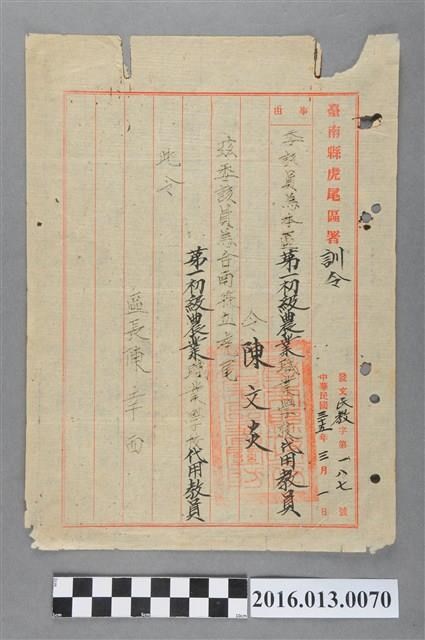 臺南縣虎尾區署訓令
發文民教字第一八七號
中華民國三十五年三月一日
事由
委該員為本區第一初級農業職業學校代用教員
令陳文炎
茲委該員為台南縣立虎尾
第一初級農業職業學校代用教員
此令
區長陳幸西
2016.013.0070